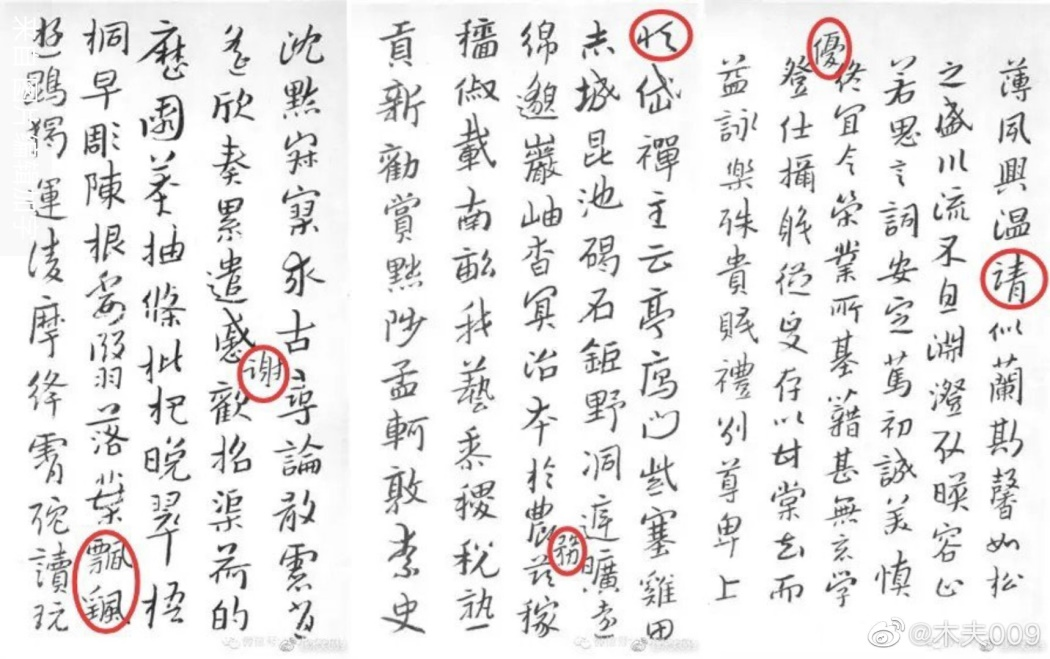 薄夙興温請似蘭斯馨如松
之盛川流不息淵澄取暎容止
若思言詞安定篤初誠美慎
終宜令榮業所基籍甚無竟学
優
登仕攝職從政存以甘棠去而
益詠樂殊貴賤禮別尊卑上
恒岱禪主云亭鴈門紫塞雞田
赤城昆池碣石鉅野洞庭曠遠
綿邈巖岫杳冥治本於農茲稼
務
穡俶載南畝我藝黍稷稅熟
貢新勸賞黜陟孟軻敦素史
沈默寂寥求古尋論散慮逍
遙欣奏累遣慼歡招渠荷的
謝
歷園莽抽條枇杷晚翠梧
桐早彫陳根委翳落葉飄颻
遊鵾獨運凌摩絳霄耽讀玩
@木夫009